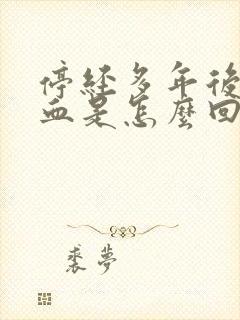 停經多年後
血是怎麼回
裘夢